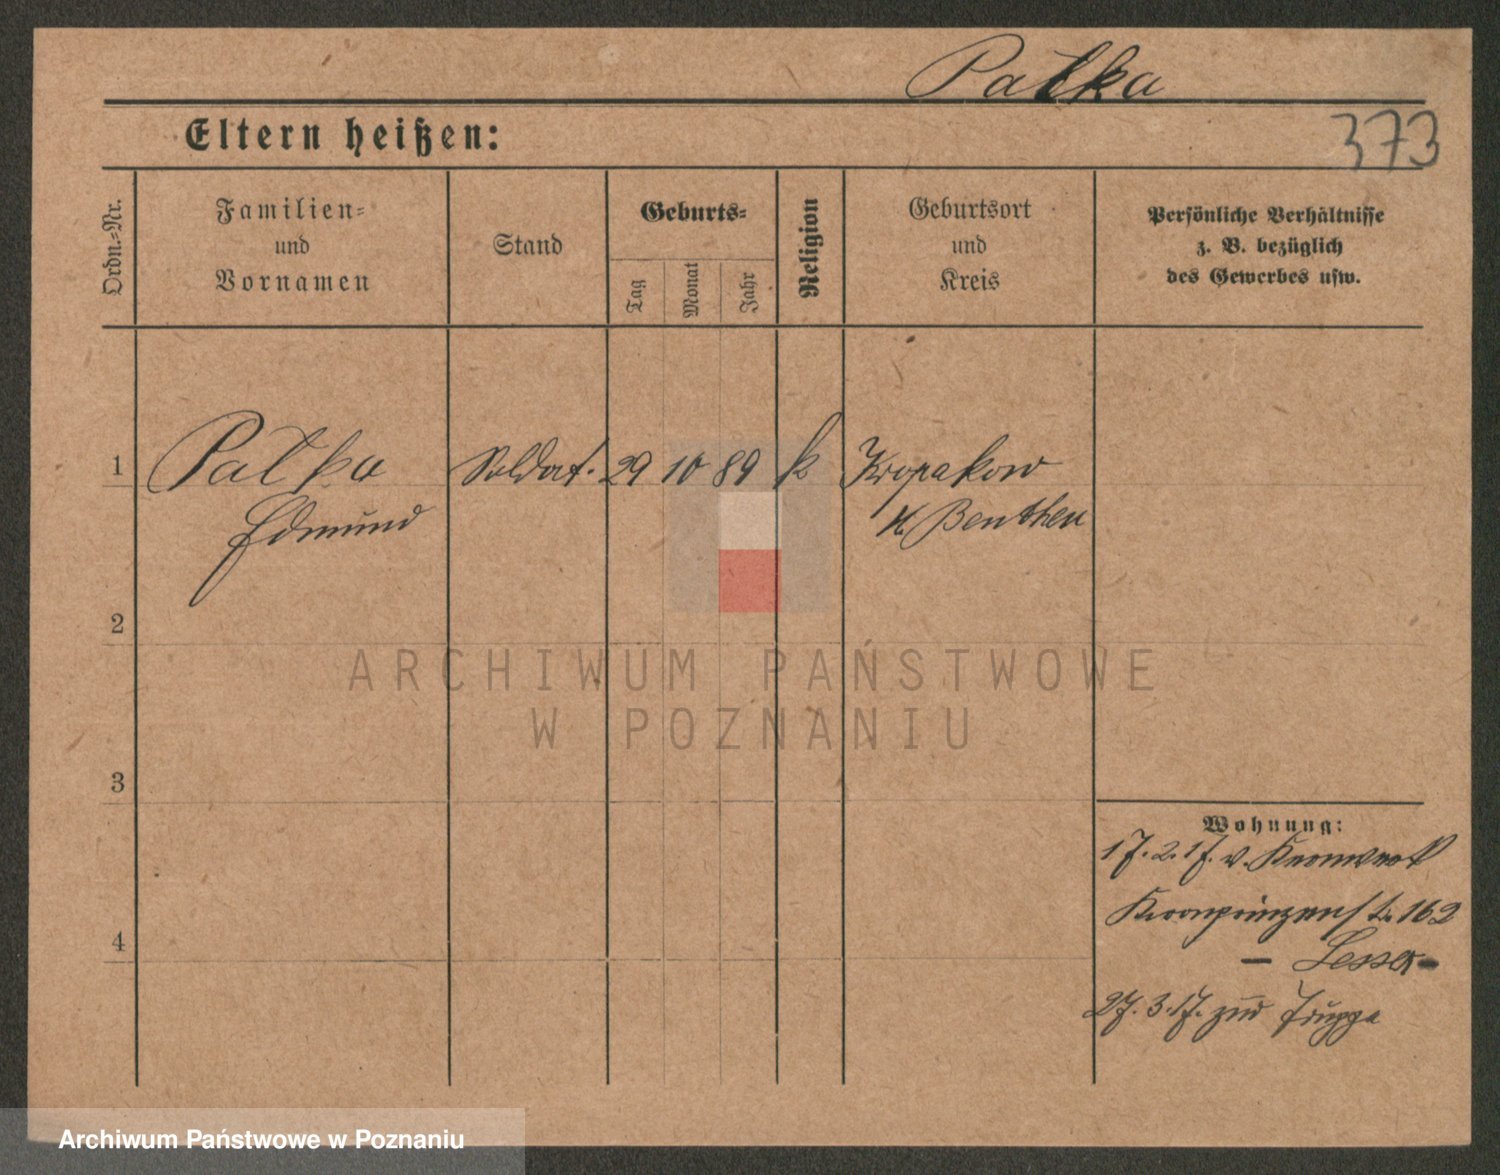 Patka
Eltern heißen:
373
Ordn.-Nr.
Familien-
und
Vornamen
Stand
Geburts-
Tag
Monat
Jahr
Religion
Geburtsort
und
Kreis
Persönliche Verhältnisse
z. B. bezüglich
des Gewerbes usw.
1
Patka
Soldat.
29
10
89
k
Kropakow
Edmund
K. Beuthen
2
ARCHIWUM PAŃSTWOWE
W POZNANIU
3
Wohnung:
17. 2. 17. v. Kernwerk
Kronprinzenstr. 162
4
— Lesser —
27. 3. 17. zur Truppe
Archiwum Państwowe w Poznaniu